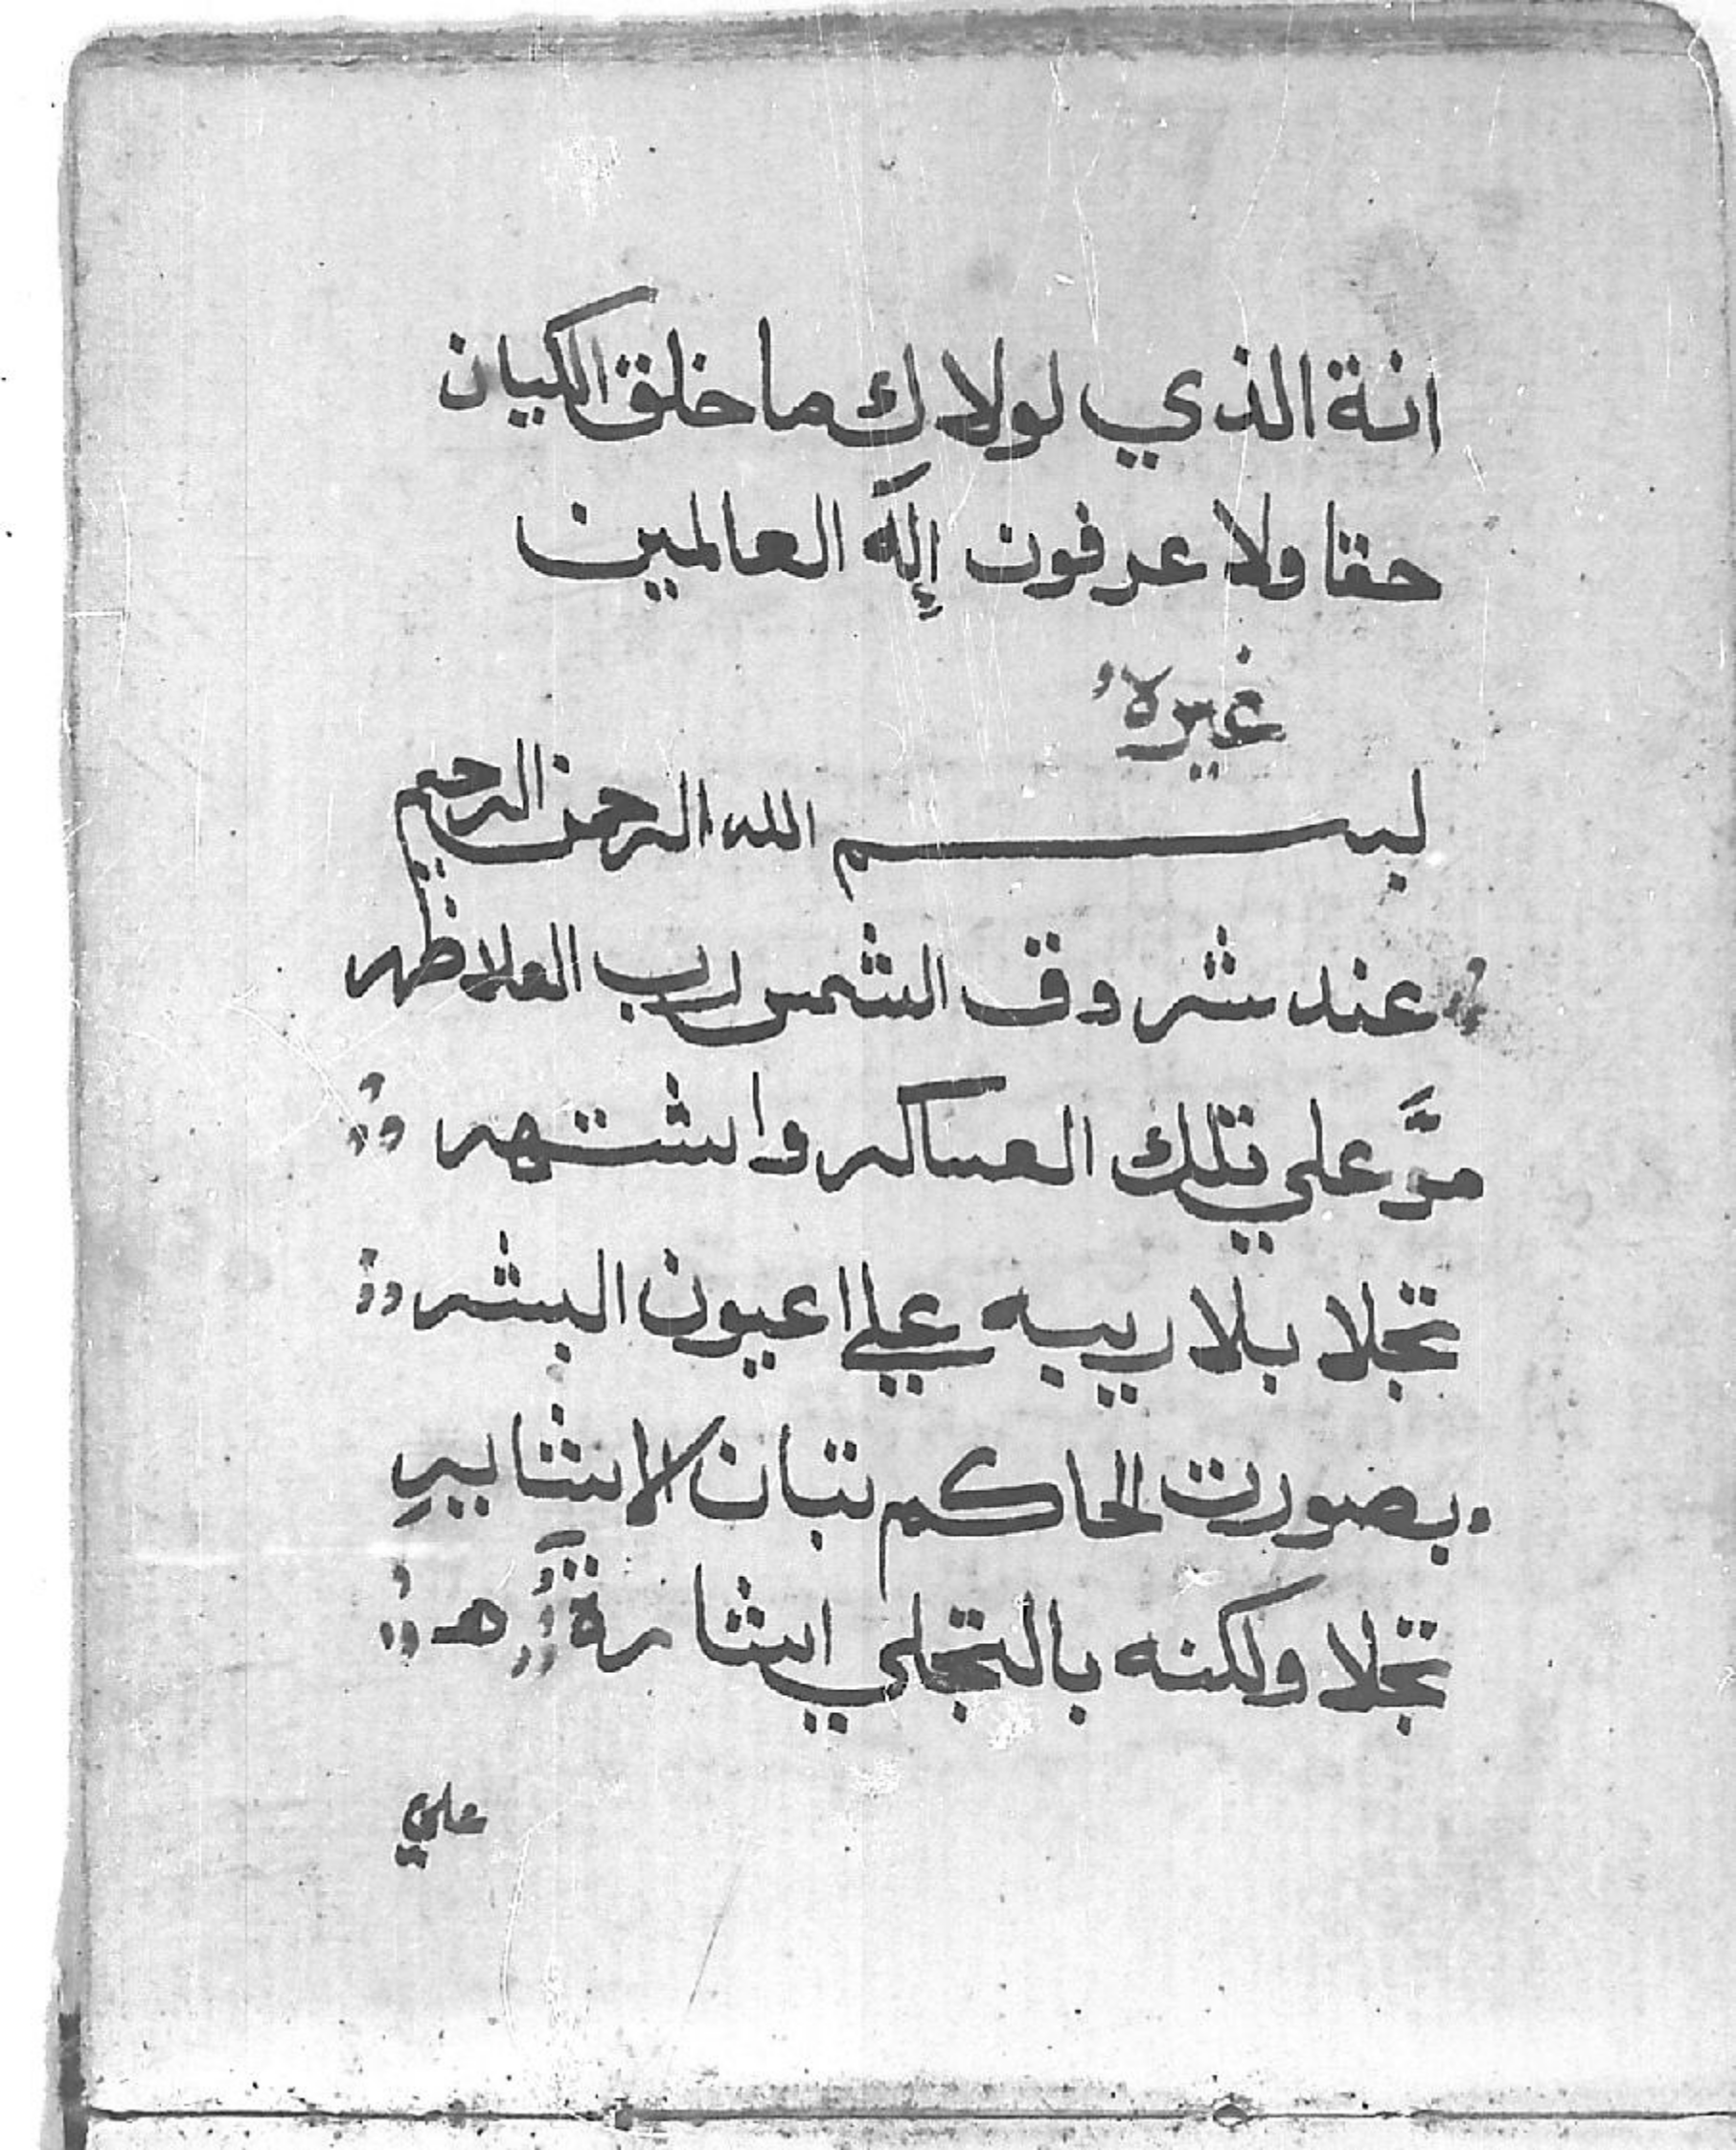 انة الذي لولاك ما خلق الكيان
حقا ولا عرفون إله العالمين
غيره
بسم الله الرحمن الرحيم
عند شروق الشمس رب العلا ظهر
مرَّ علي تلك العساكر واشتهر
تجلا بلا ريبه علي اعيون البشر
بصورت الحاكم تبان لابشابير
تجلا ولكنه بالتجلي ابشارة
علي